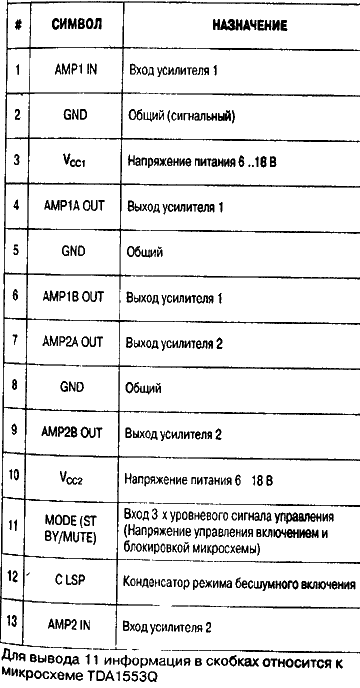 # СИМВОЛ НАЗНАЧЕНИЕ
1 AMP1 IN Вход усилителя 1
2 GND Общий (сигнальный)
3 VCC1 Напряжение питания 6 ..18 В
4 AMP1A OUT Выход усилителя 1
5 GND Общий
6 AMP1B OUT Выход усилителя 1
7 AMP2A OUT Выход усилителя 2
8 GND Общий
9 AMP2B OUT Выход усилителя 2
10 VCC2 Напряжение питания 6 18 В
11 MODE (ST BY/MUTE) Вход 3 х уровневого сигнала управления
(Напряжение управления включением и
блокировкой микросхемы)
12 C LSP Конденсатор режима бесшумного включения
13 AMP2 IN Вход усилителя 2
Для вывода 11 информация в скобках относится к
микросхеме TDA1553Q